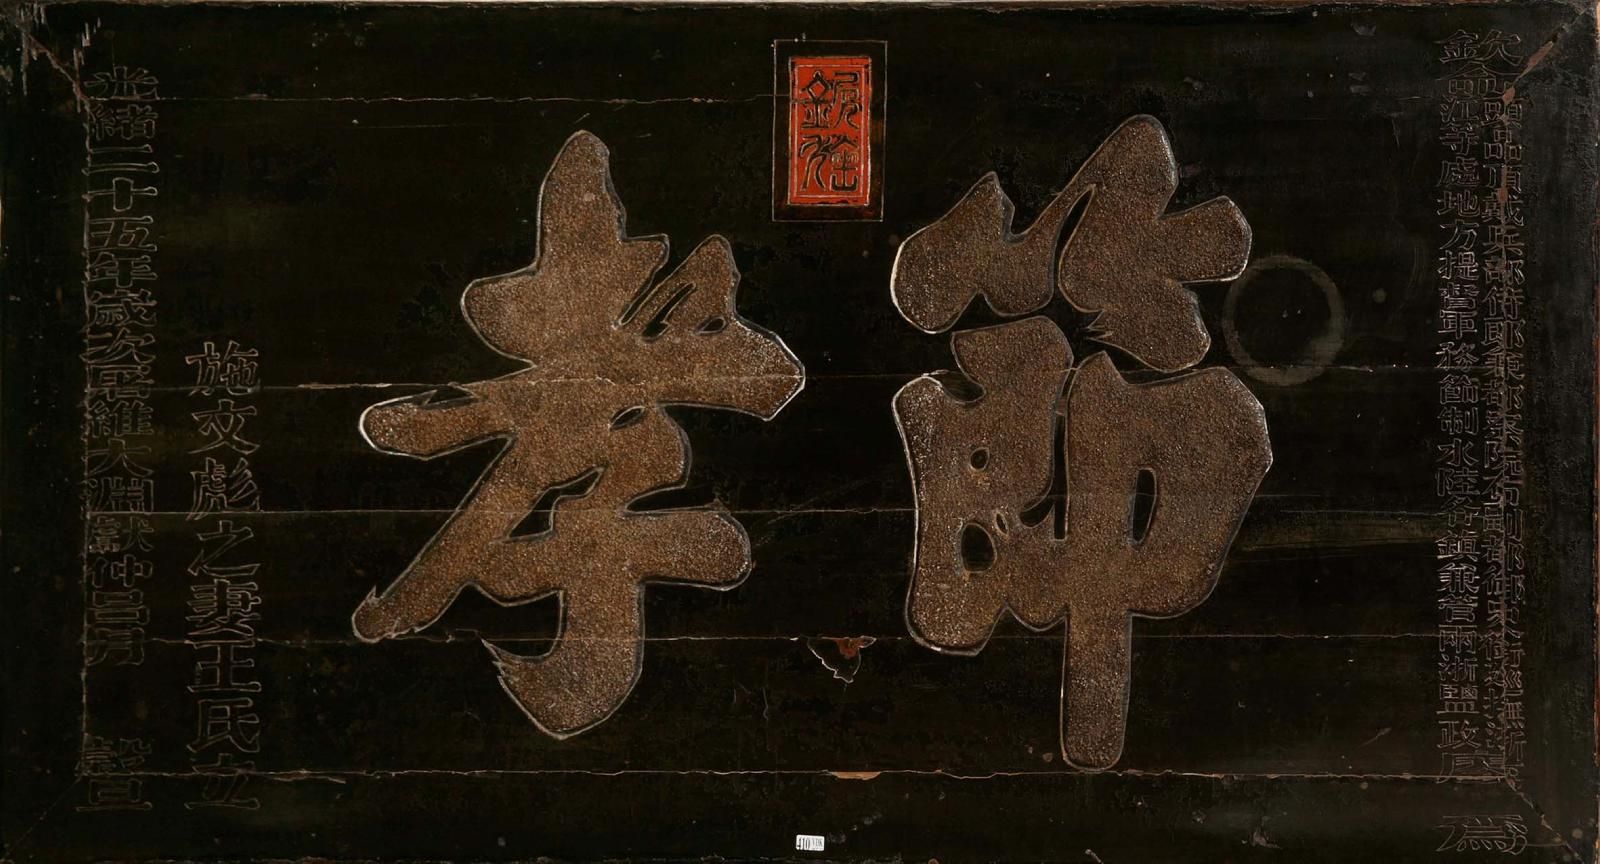 欽命頭品頂戴兵部侍郎兼都察院右副都御史巡撫浙
江等處地方提督軍務節制水陸各鎮兼管兩浙鹽政
為
節孝
施文彪之妻王氏立
光緒二十五年歲次屠維大淵獻仲呂月 穀旦
410